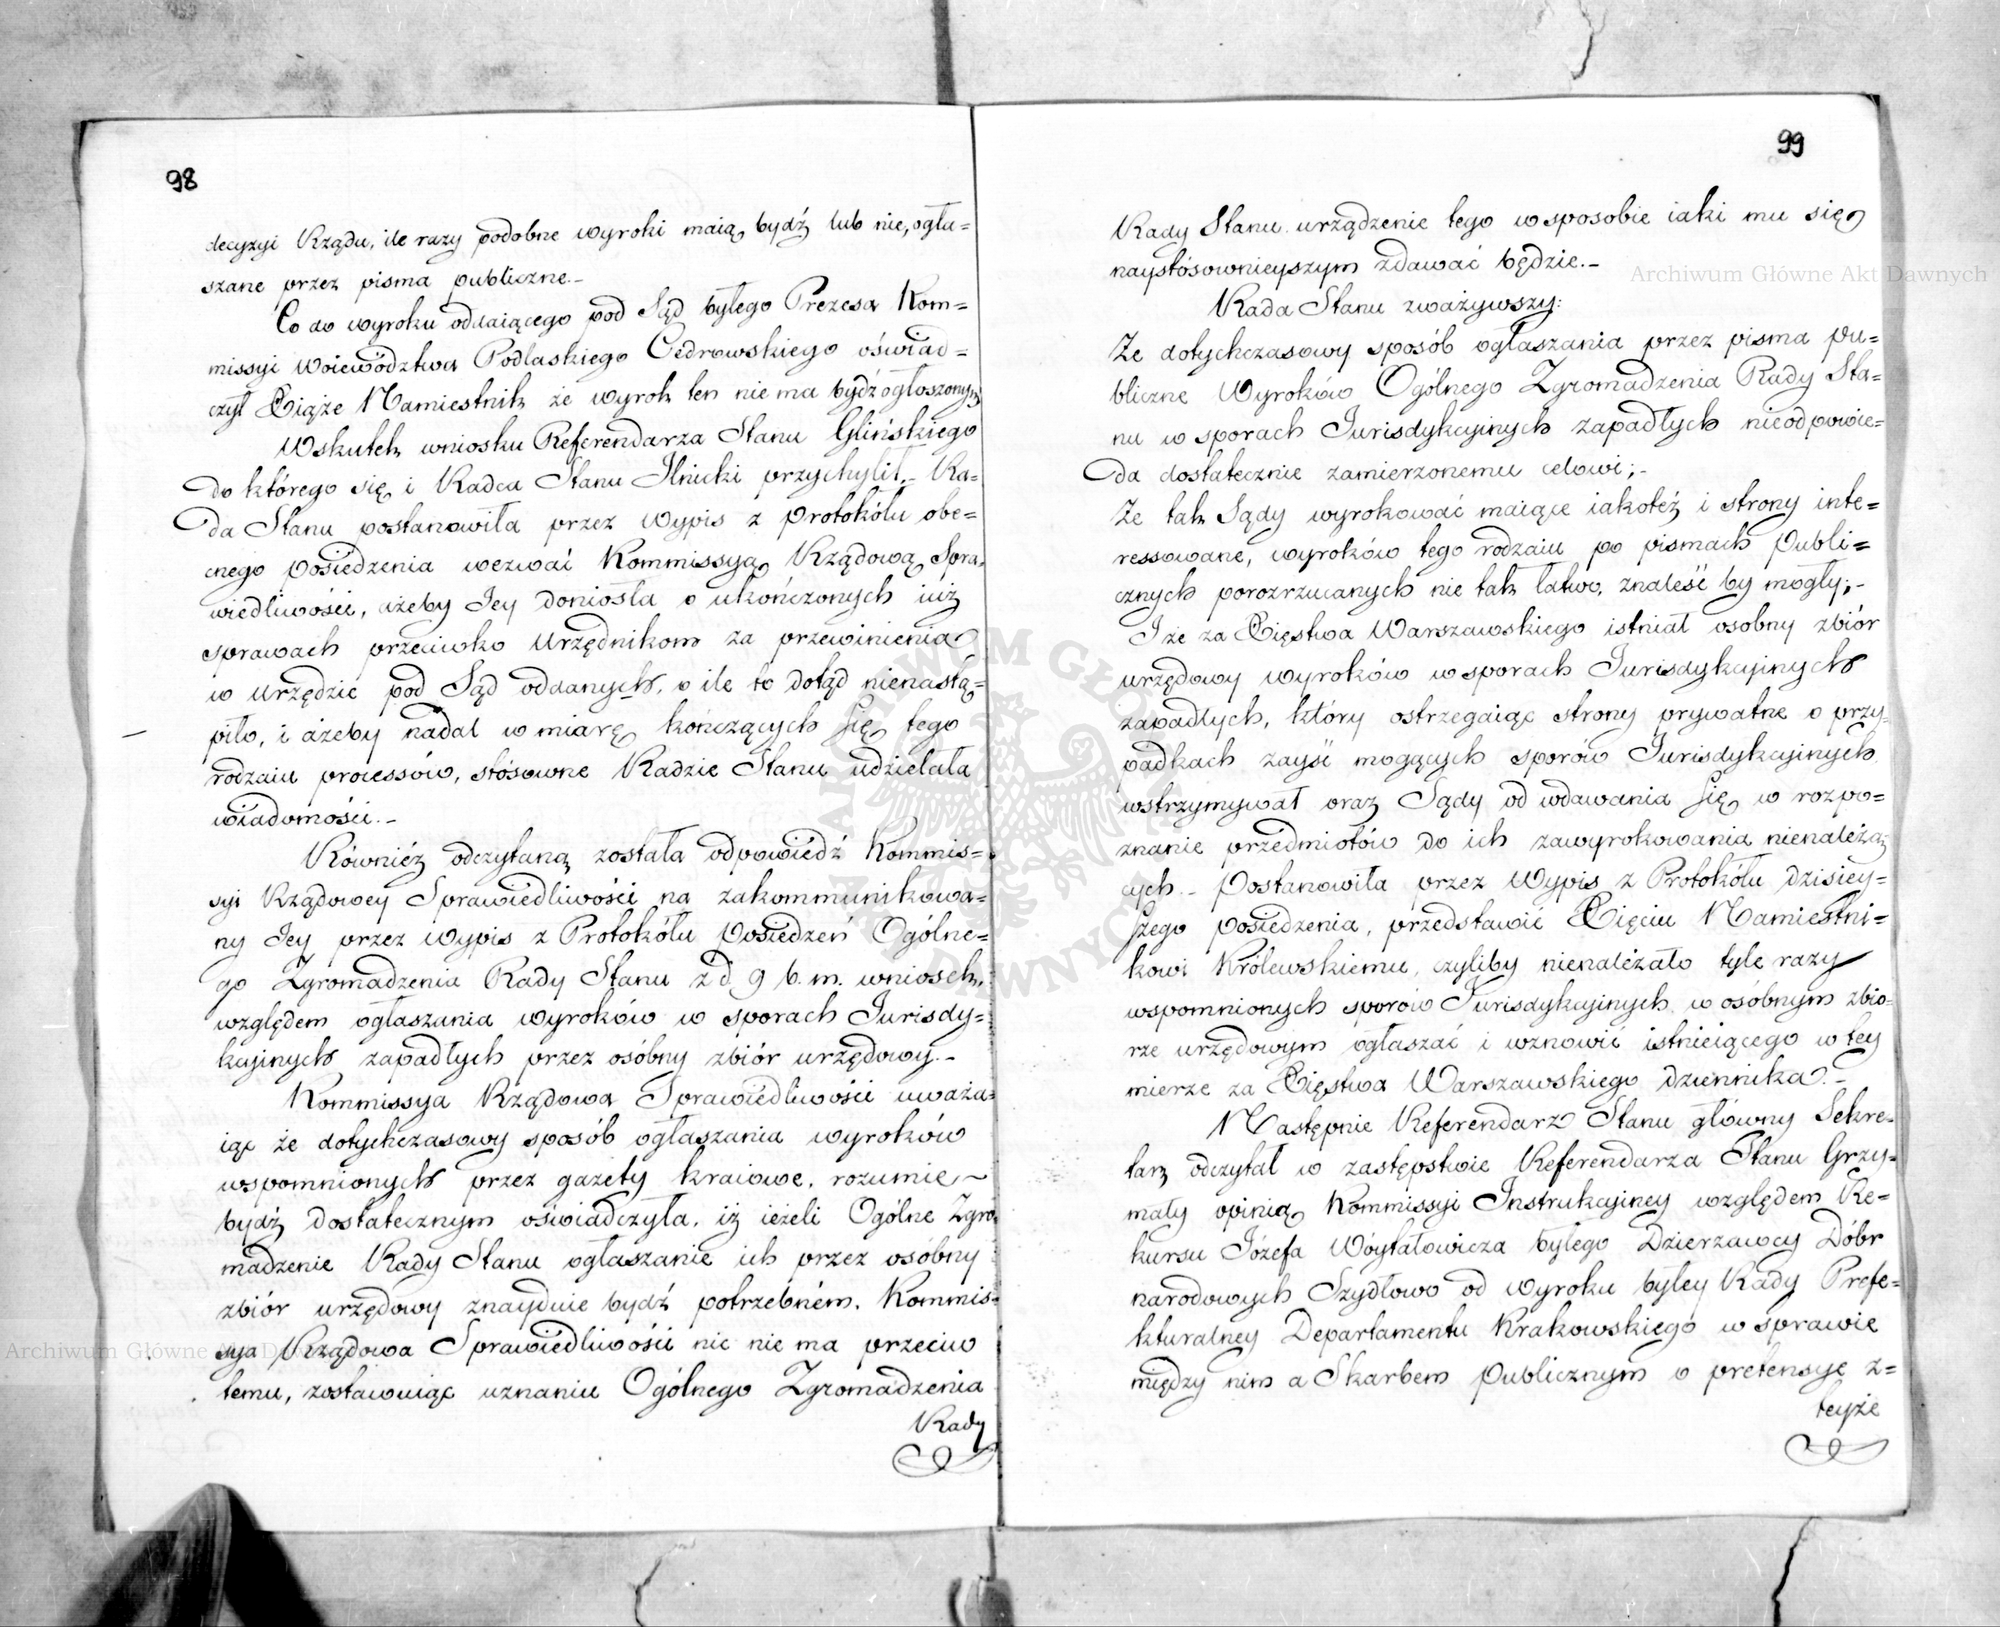 98
decyzyi Rządu, ile razy podobne wyroki maią bydź lub nie, ogła=
szane przez pisma publiczne.-
Co do wyroku oddaiącego pod Sąd byłego Prezesa Kom=
missyi Woiewództwa Podlaskiego Cedrowskiego oświad=
czył Xiąże Namiestnik że wyrok ten nie ma bydź ogłoszonym
Wskutek wniosku Referendarza Stanu Glińskiego
do którego się i Radca Stanu Ilnicki przychylił.- Ra=
da Stanu postanowiła przez Wypis z Protokółu obe=
cnego posiedzenia wezwać Kommissyą Rządową Spra=
wiedliwości, ażeby Jey doniosła o ukończonych iuż
sprawach przeciwko Urzędnikom za przewinienia
w Urzędzie pod Sąd oddanych, o ile to dotąd nienastą=
piło, i ażeby nadal w miarę kończących się tego
rodzaiu processów, stósowne Radzie Stanu udzielała
wiadomości.-
Również odczytaną została odpowiedź Kommis=
syi Rządowey Sprawiedliwości na zakommunikowa=
ny Jey przez Wypis z Protokółu Posiedzeń Ogólne=
go Zgromadzenia Rady Stanu z d. 9 b. m. wniosek,
względem ogłaszania wyroków w sporach Jurisdy=
kcyinych zapadłych przez osóbny zbiór urzędowy.-
Kommissya Rządowa Sprawiedliwości uważa=
iąc że dotychczasowy sposób ogłaszania wyroków
wspomnionych przez gazety kraiowe, rozumie
bydź dostatecznym oświadczyła, iż ieżeli Ogólne Zgro=
madzenie Rady Stanu ogłaszanie ich przez osóbny
zbiór urzędowy znayduie bydź potrzebném, Kommis=
sya Rządowa Sprawiedliwości nic nie ma przeciw
temu, zostawuiąc uznaniu Ogólnego Zgromadzenia
Rady
99
Rady Stanu urządzenie tego w sposobie iaki mu się
naystósownieyszym zdawać będzie.-
Rada Stanu zważywszy:
Że dotychczasowy sposób ogłaszania przez pisma pu=
bliczne Wyroków Ogólnego Zgromadzenia Rady Sta=
nu w sporach Jurisdykcyinych zapadłych nieodpowie=
da dostatecznie zamierzonemu celowi;-
Że tak Sądy wyrokować maiące iakoteż i strony inte=
ressowane, wyroków tego rodzaiu po pismach publi=
cznych porozrzucanych nie tak łatwo, znaleść by mogły;-
I że za Xięstwa Warszawskiego istniał osobny zbiór
urzędowy wyroków w sporach Jurisdykcyinych
zapadłych, który ostrzegaiąc strony prywatne o przy=
padkach zayść mogących sporów Jurisdykcyinych
wstrzymywał oraz Sądy od wdawania się w rozpo=
znanie przedmiotów do ich zawyrokowania nienależą=
cych.- Postanowiła przez Wypis z Protokółu dzisiey=
szego posiedzenia, przedstawić Xięciu Namiestni=
kowi Królewskiemu, czyliby nienależało tyle razy
wspomnionych sporów Jurisdykcyinych w osóbnym zbio=
rze urzędowym ogłaszać i wznowić istnieiącego w tey
mierze za Xięstwa Warszawskiego dziennika.-
Następnie Referendarz Stanu główny Sekre=
tarz odczytał w zastępstwie Referendarza Stanu Grzy=
mały opinią Kommissyi Instrukcyiney względem Re=
kursu Józefa Wóytałowicza byłego Dzierzawcy Dóbr
narodowych Szydłowo od Wyroku byłey Rady Prefe=
kturalney Departamentu Krakowskiego w sprawie
między nim a Skarbem Publicznym o pretensye z=
teyże
Archiwum Główne Akt Dawnych
Archiwum Główne Akt Dawnych
ARCHIWUM GŁÓWNE AKT DAWNYCH